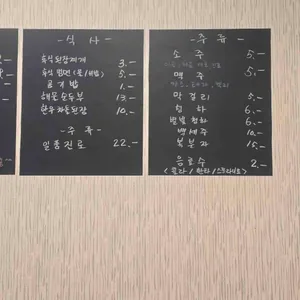 - 식 사 -
후식 된장찌개 3.-
후식 냉면 (물/비빔) 5.-
공기밥 1.-
해물 순두부 13.-
한우차돌된장 10.-
- 주 류 -
일품진로 22.-
- 주 류 -
소 주 5.-
맥 주 5.-
막 걸 리 5.-
청 하 6.-
별빛 청하 6.-
백세주 10.-
복분자 15.-
음료수 2.-
(콜라/환타/스프라이트)